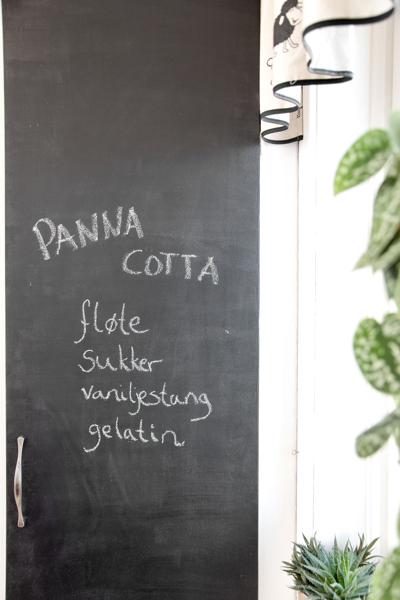 PANNA
COTTA
fløte
sukker
vaniljestang
gelatin